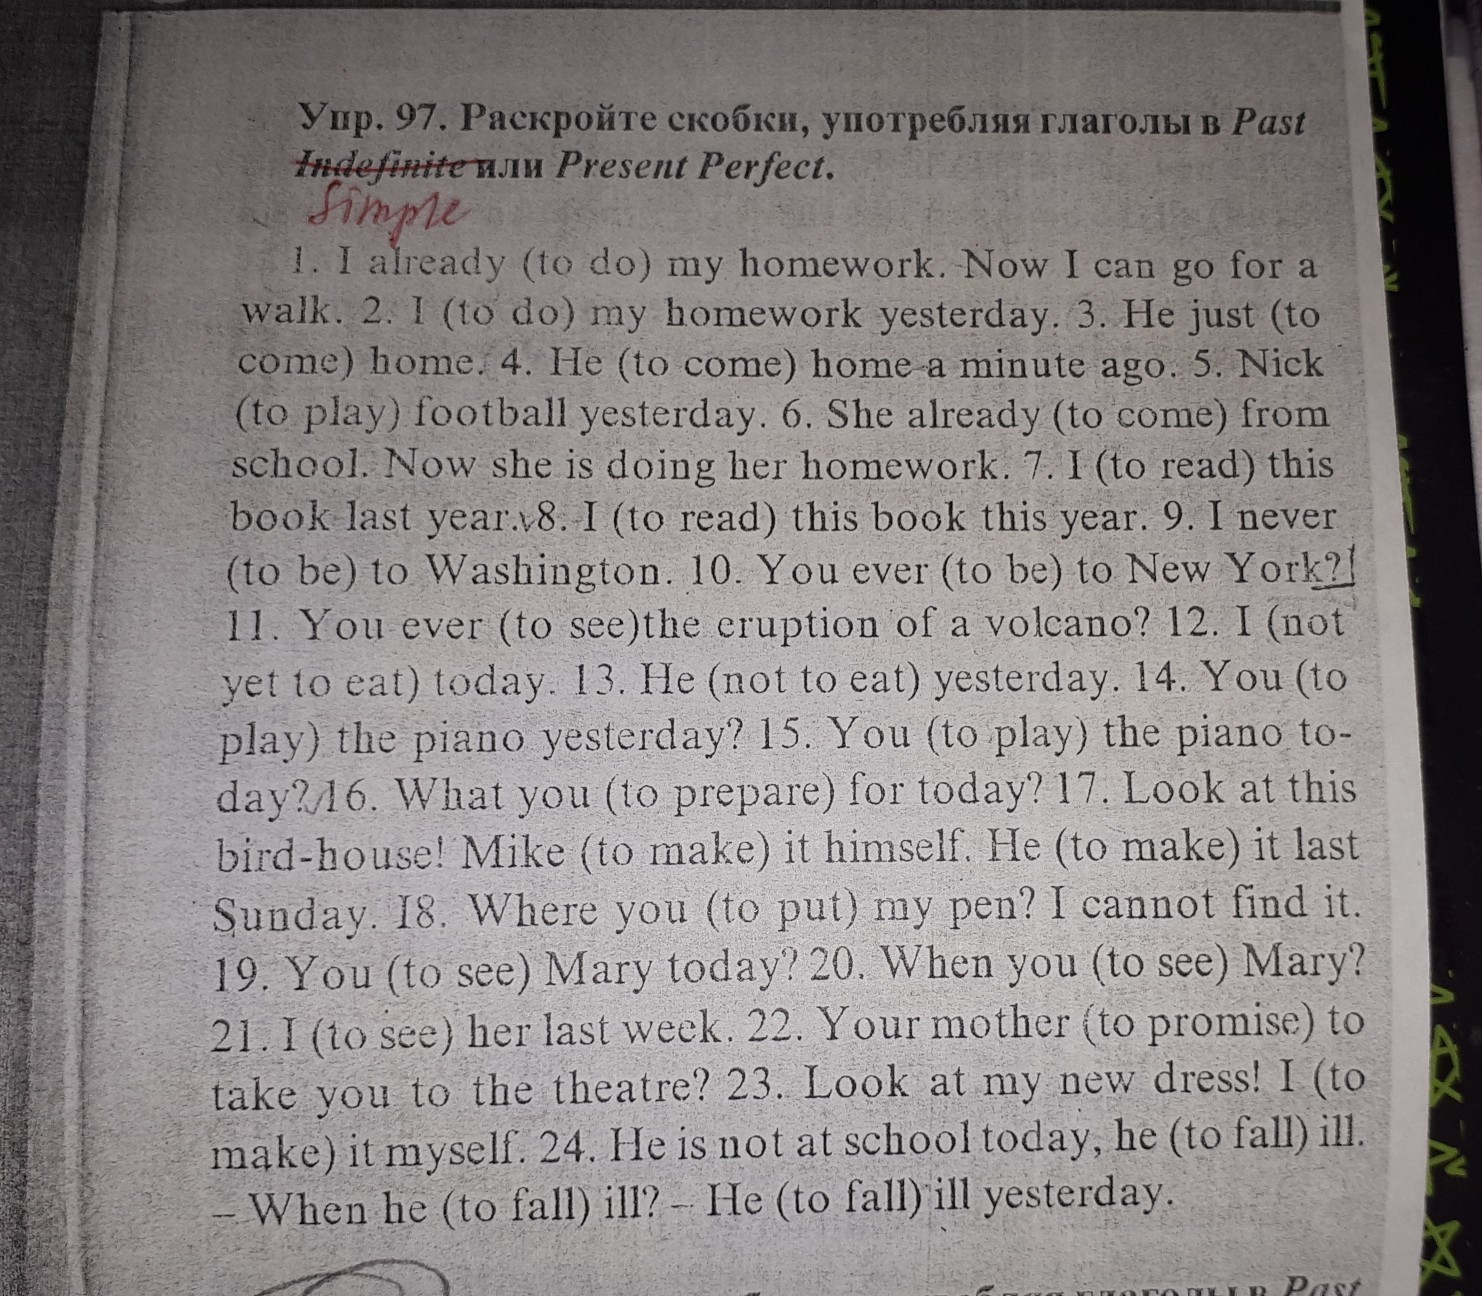 Упр. 97. Раскройте скобки, употребляя глаголы в Past
Indefinite или Present Perfect.
Simple
1. I already (to do) my homework. Now I can go for a
walk. 2. I (to do) my homework yesterday. 3. He just (to
come) home. 4. He (to come) home a minute ago. 5. Nick
(to play) football yesterday. 6. She already (to come) from
school. Now she is doing her homework. 7. I (to read) this
book last year. 8. I (to read) this book this year. 9. I never
(to be) to Washington. 10. You ever (to be) to New York?
11. You ever (to see)the eruption of a volcano? 12. I (not
yet to eat) today. 13. He (not to eat) yesterday. 14. You (to
play) the piano yesterday? 15. You (to play) the piano to-
day? 16. What you (to prepare) for today? 17. Look at this
bird-house! Mike (to make) it himself. He (to make) it last
Sunday. 18. Where you (to put) my pen? I cannot find it.
19. You (to see) Mary today? 20. When you (to see) Mary?
21. I (to see) her last week. 22. Your mother (to promise) to
take you to the theatre? 23. Look at my new dress! I (to
make) it myself. 24. He is not at school today, he (to fall) ill.
– When he (to fall) ill? – He (to fall) ill yesterday.
глаголы в Past